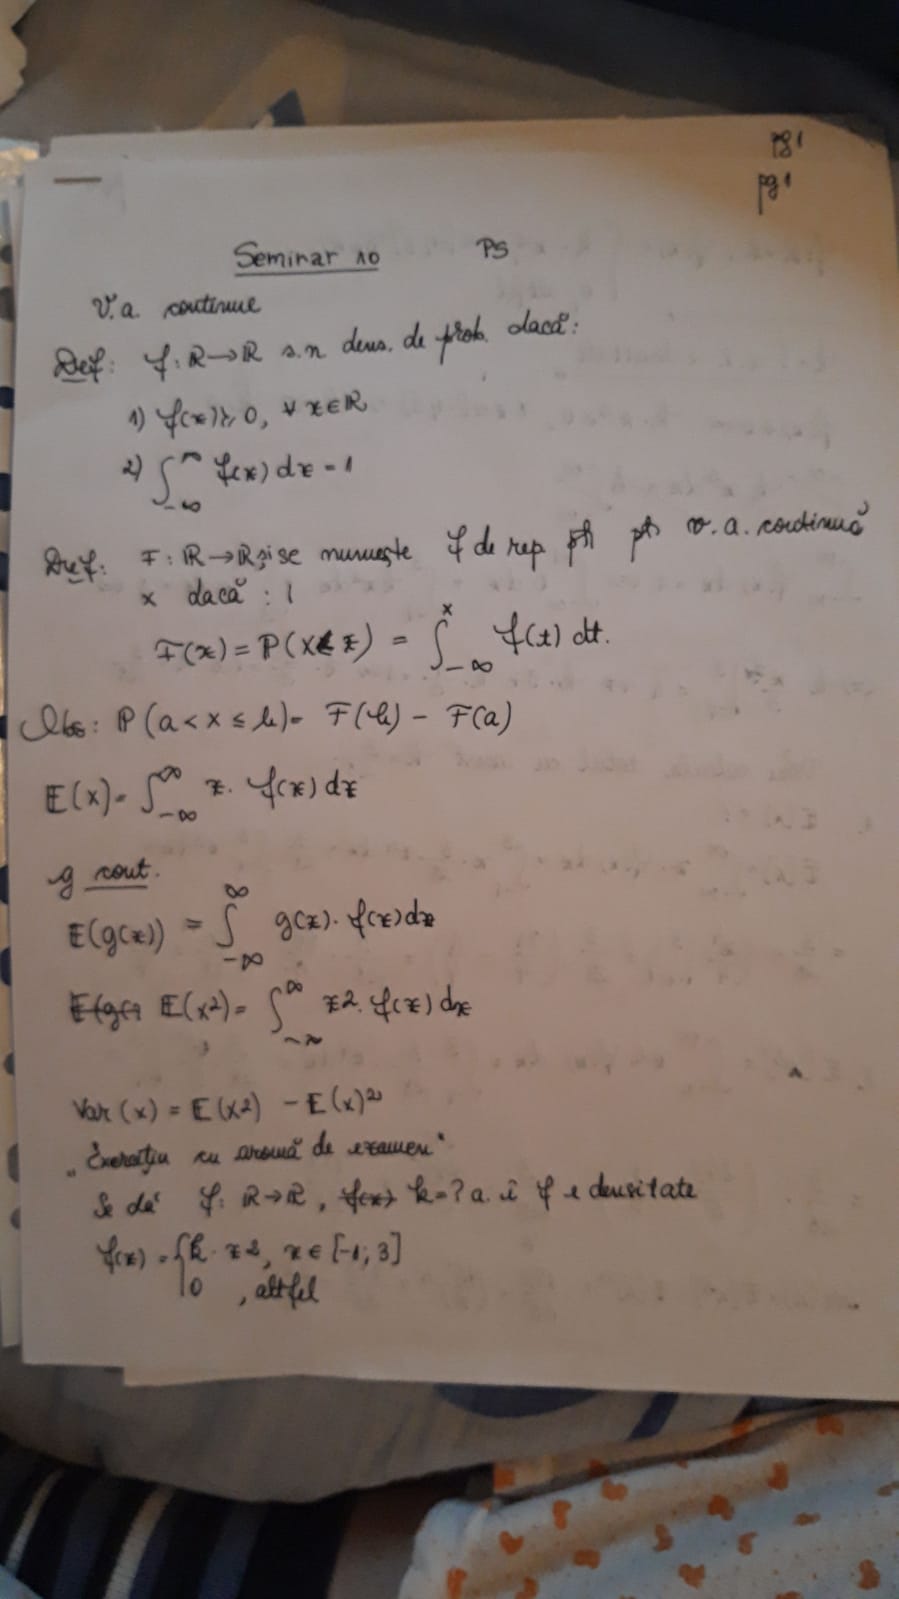 pg1
pg1
Seminar 10 PS
V.a. continue
Def: f: ℝ→ℝ s.n dens. de prob. dacă:
1) f(x)≥0, ∀x∈ℝ
2) ∫_{-∞}^{∞} f(x) dx = 1
Def: F: ℝ→ℝ și se numește f de rep pt v.a. continuă
x dacă :
F(x) = P(X≤x) = ∫_{-∞}^{x} f(t) dt.
Obs: P(a<x≤b) = F(b) - F(a)
E(x) = ∫_{-∞}^{∞} x. f(x) dx
g cont.
E(g(x)) = ∫_{-∞}^{∞} g(x). f(x)dx
E(x2) = ∫_{-∞}^{∞} x2. f(x) dx
Var (x) = E(x2) - E(x)2
„Exercițiu cu aromă de examen"
Se dă f: ℝ→ℝ, k=? a. î f e densitate
f(x) = {k. x2, x∈[-1; 3]
0 , altfel